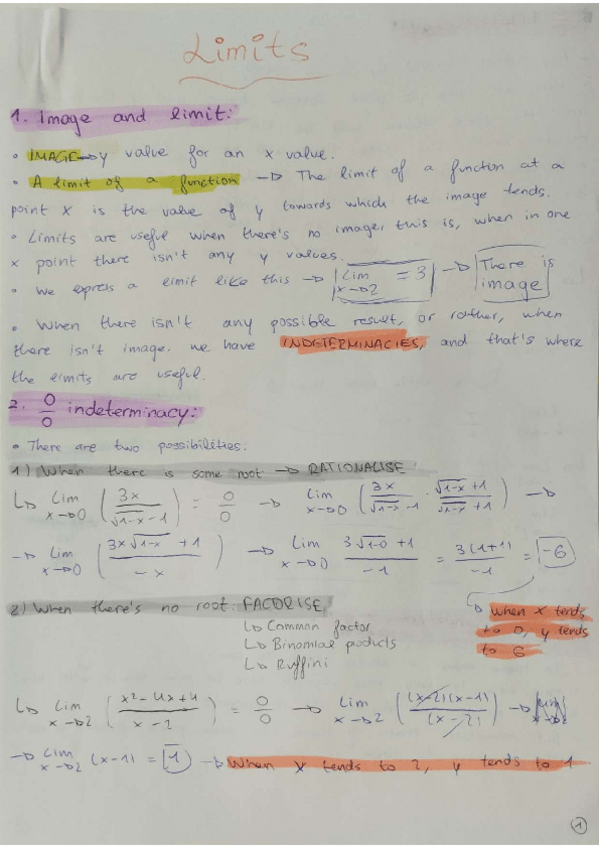 Limits
1. Image and limit:
• IMAGE → y value for an x value.
• A limit of a function → The limit of a function at a
point x is the value of y towards which the image tends.
• Limits are useful when there's no image, this is, when in one
x point there isn't any y values.
• We epress a limit like this → Lim x→2 = 3 → There is image
• When there isn't any possible result, or rather, when
there isn't image. we have INDETERMINACIES, and that's where
the limits are useful.
2. 0/0 indeterminacy:
• There are two possibilities:
1) When there is some root → RATIONALISE
↳ Lim x→0 (3x / √1-x - 1) = 0/0 → Lim x→0 (3x / √1-x - 1 · √1-x + 1 / √1-x + 1) →
→ Lim x→0 (3x √1-x + 1 / -x) → Lim x→0 3√1-0 + 1 / -1 = 3(1+1) / -1 = -6
2) When there's no root: FACORISE
↳ Common factor
↳ Binomial poducts
↳ Ruffini
↳ when x tends
to 0, y tends
to 6
↳ Lim x→2 ( / x-2) = 0/0 → Lim x→2 ((x-2)(x-1) / (x-2)) →
→ Lim x→2 (x-1) = 1 → When x tends to 2, y tends to 1
1